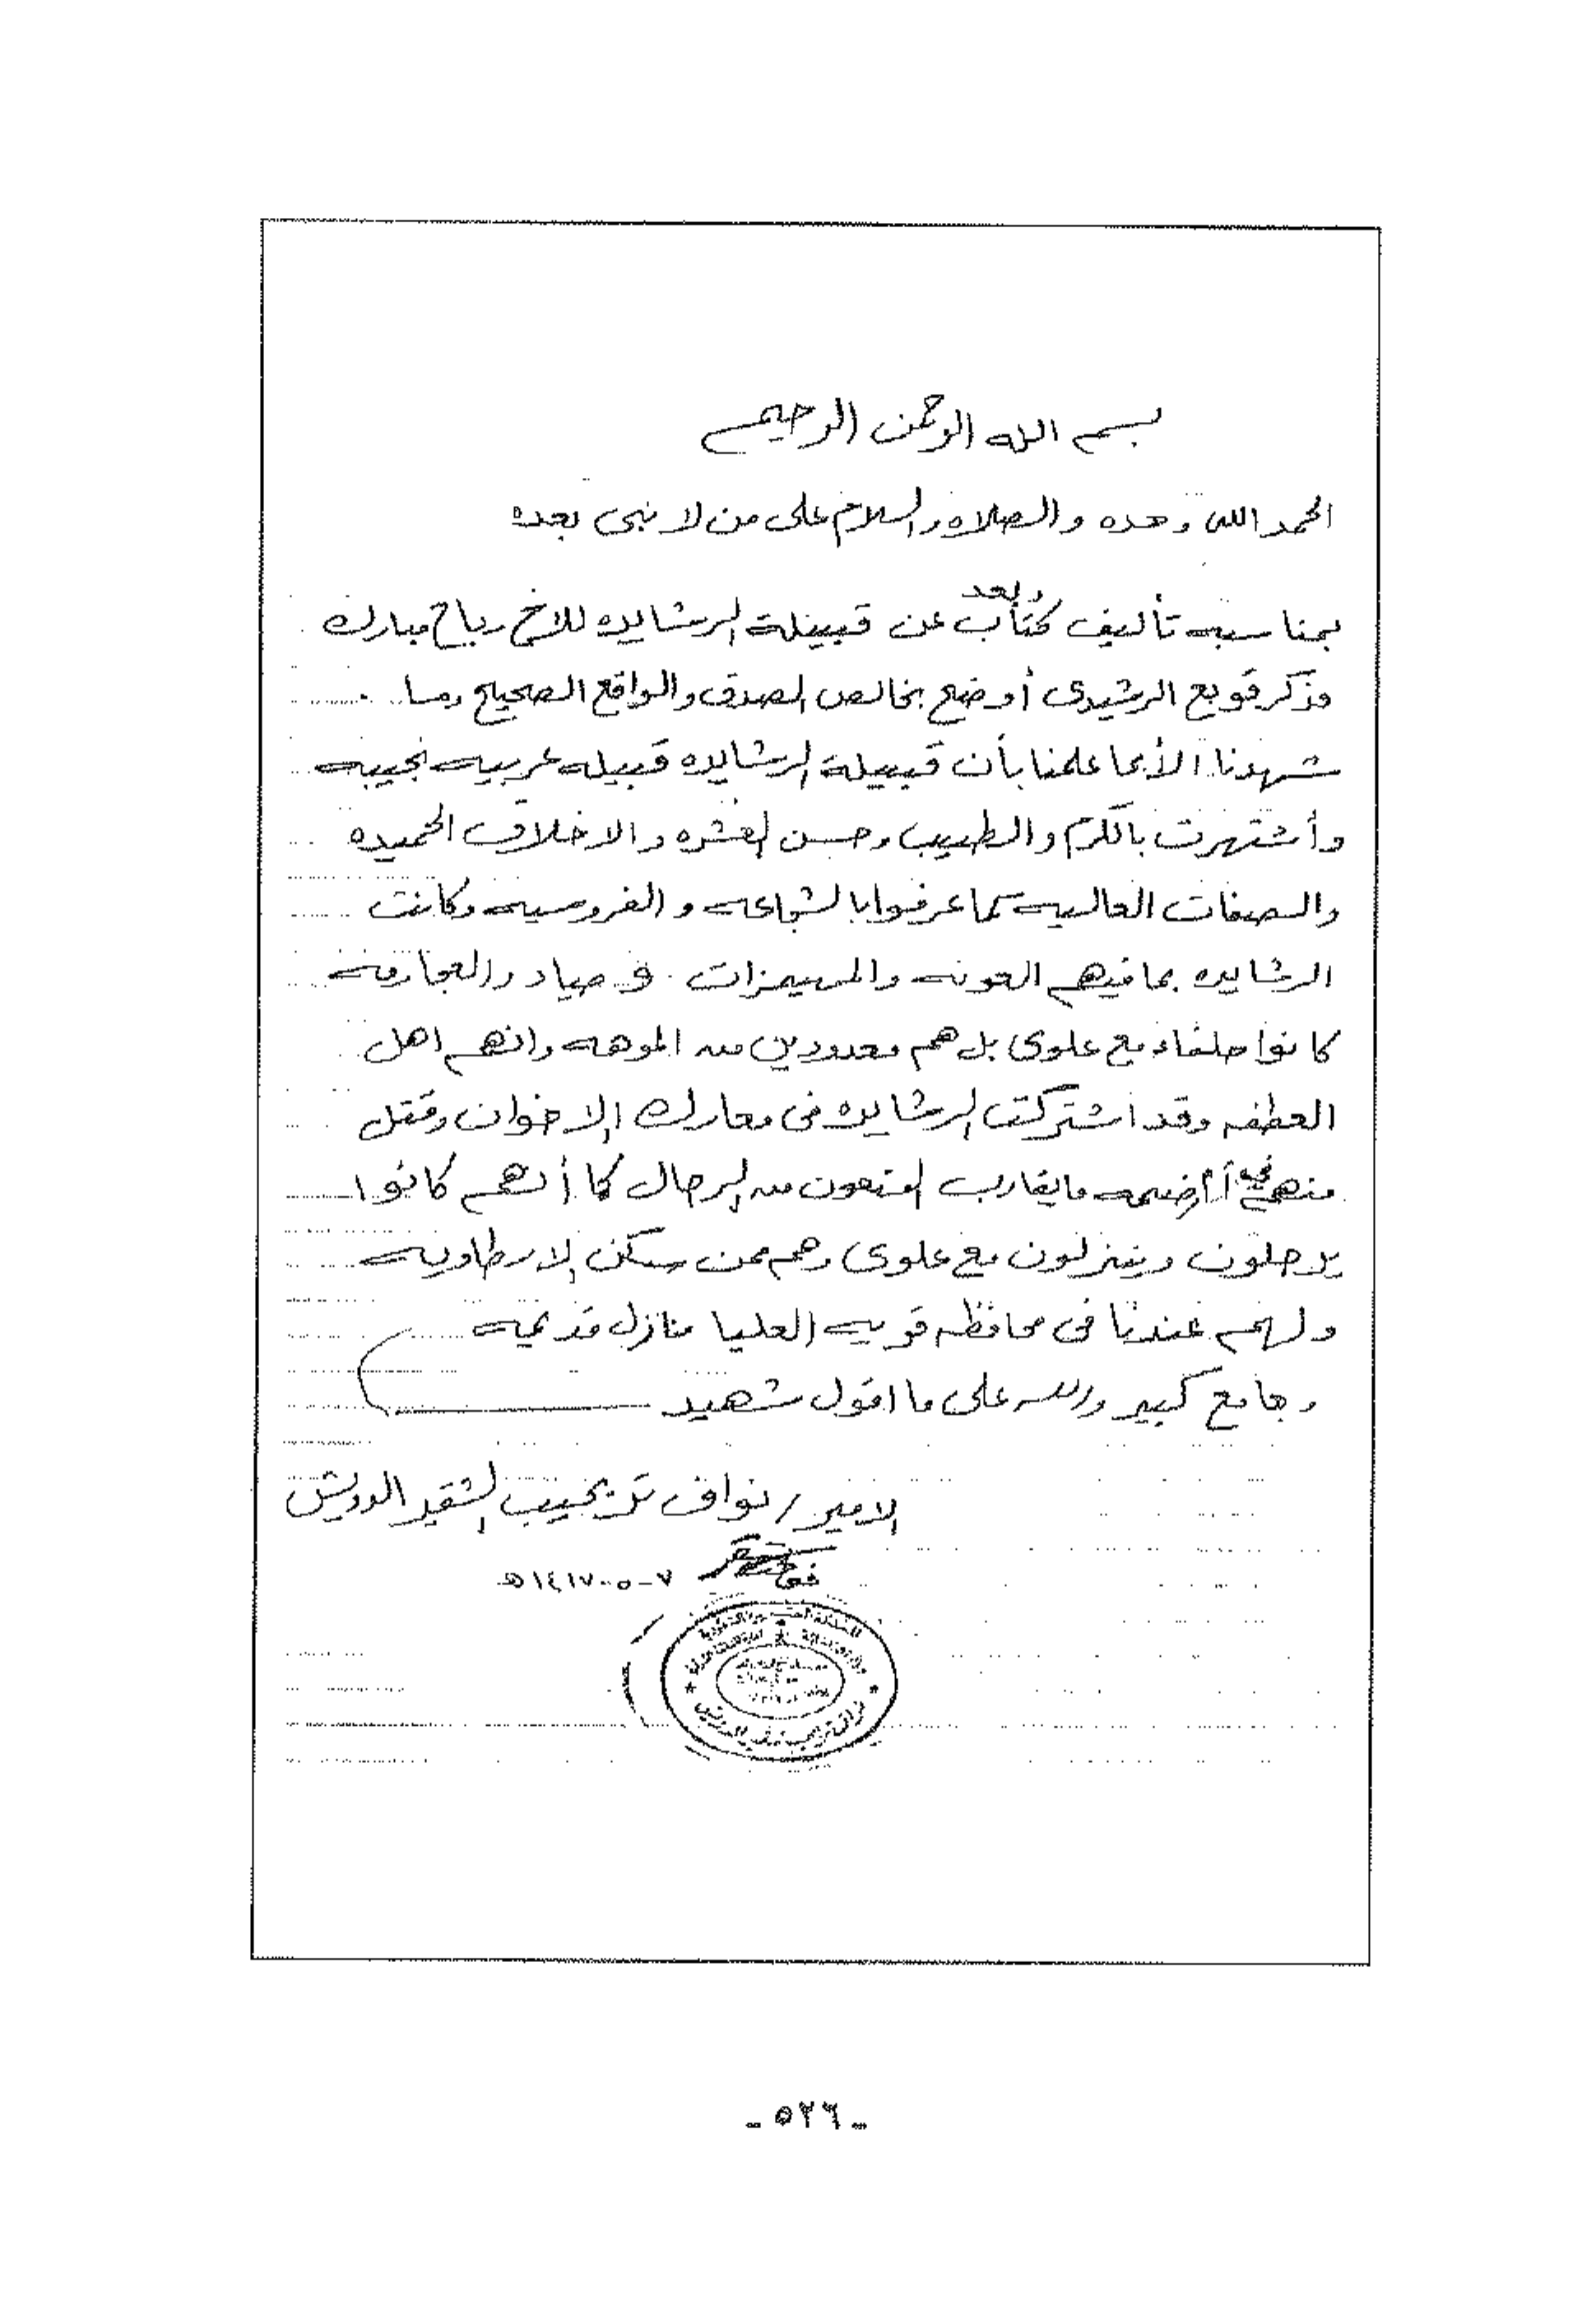 بسم الله الرحمن الرحيم
الحمد الله وحده والصلاه والسلام على من لا نبى بعده
وبعد
بمناسبه تأليف كتاب عن قبيلة الرشايده للاخ رباح مبارك
وذكر قويع الرشيدى أوضح بخالص الصدق والواقع الصحيح وما
شهدنا الأبما علمنا بأن قبيلة الرشايده قبيله عربيه نجيبه
وأشتهرت بالكرم والطيب وحسن العشره والاخلاق الحميده
والصفات العاليه كما عرفوا بالشجاعه والفروسيه وكانت
الرشايده بما فيهم العونه والمهيمزات وصياد والعجارمه
كانوا حلفاء مع علوى بل هم معدودين من الموهه وانهم اهل
العطفه وقد اشتركت الرشايده فى معارك الاخوان وقتل
منهم فى أم رضمه ما يقارب التسعون من الرجال كما أنهم كانوا
يرحلون وينزلون مع علوى وهم ممن سكن الارطاويه
ولهم عندنا فى محافظه قريه العليا منازل قديمه
وجامع كبير والله على ما اقول شهيد
الامير / نواف تريحيب الشقير الدويش
٧-٥-١٤١٧ه
نواف تريحيب شقير الدويش
-٥٢٦-